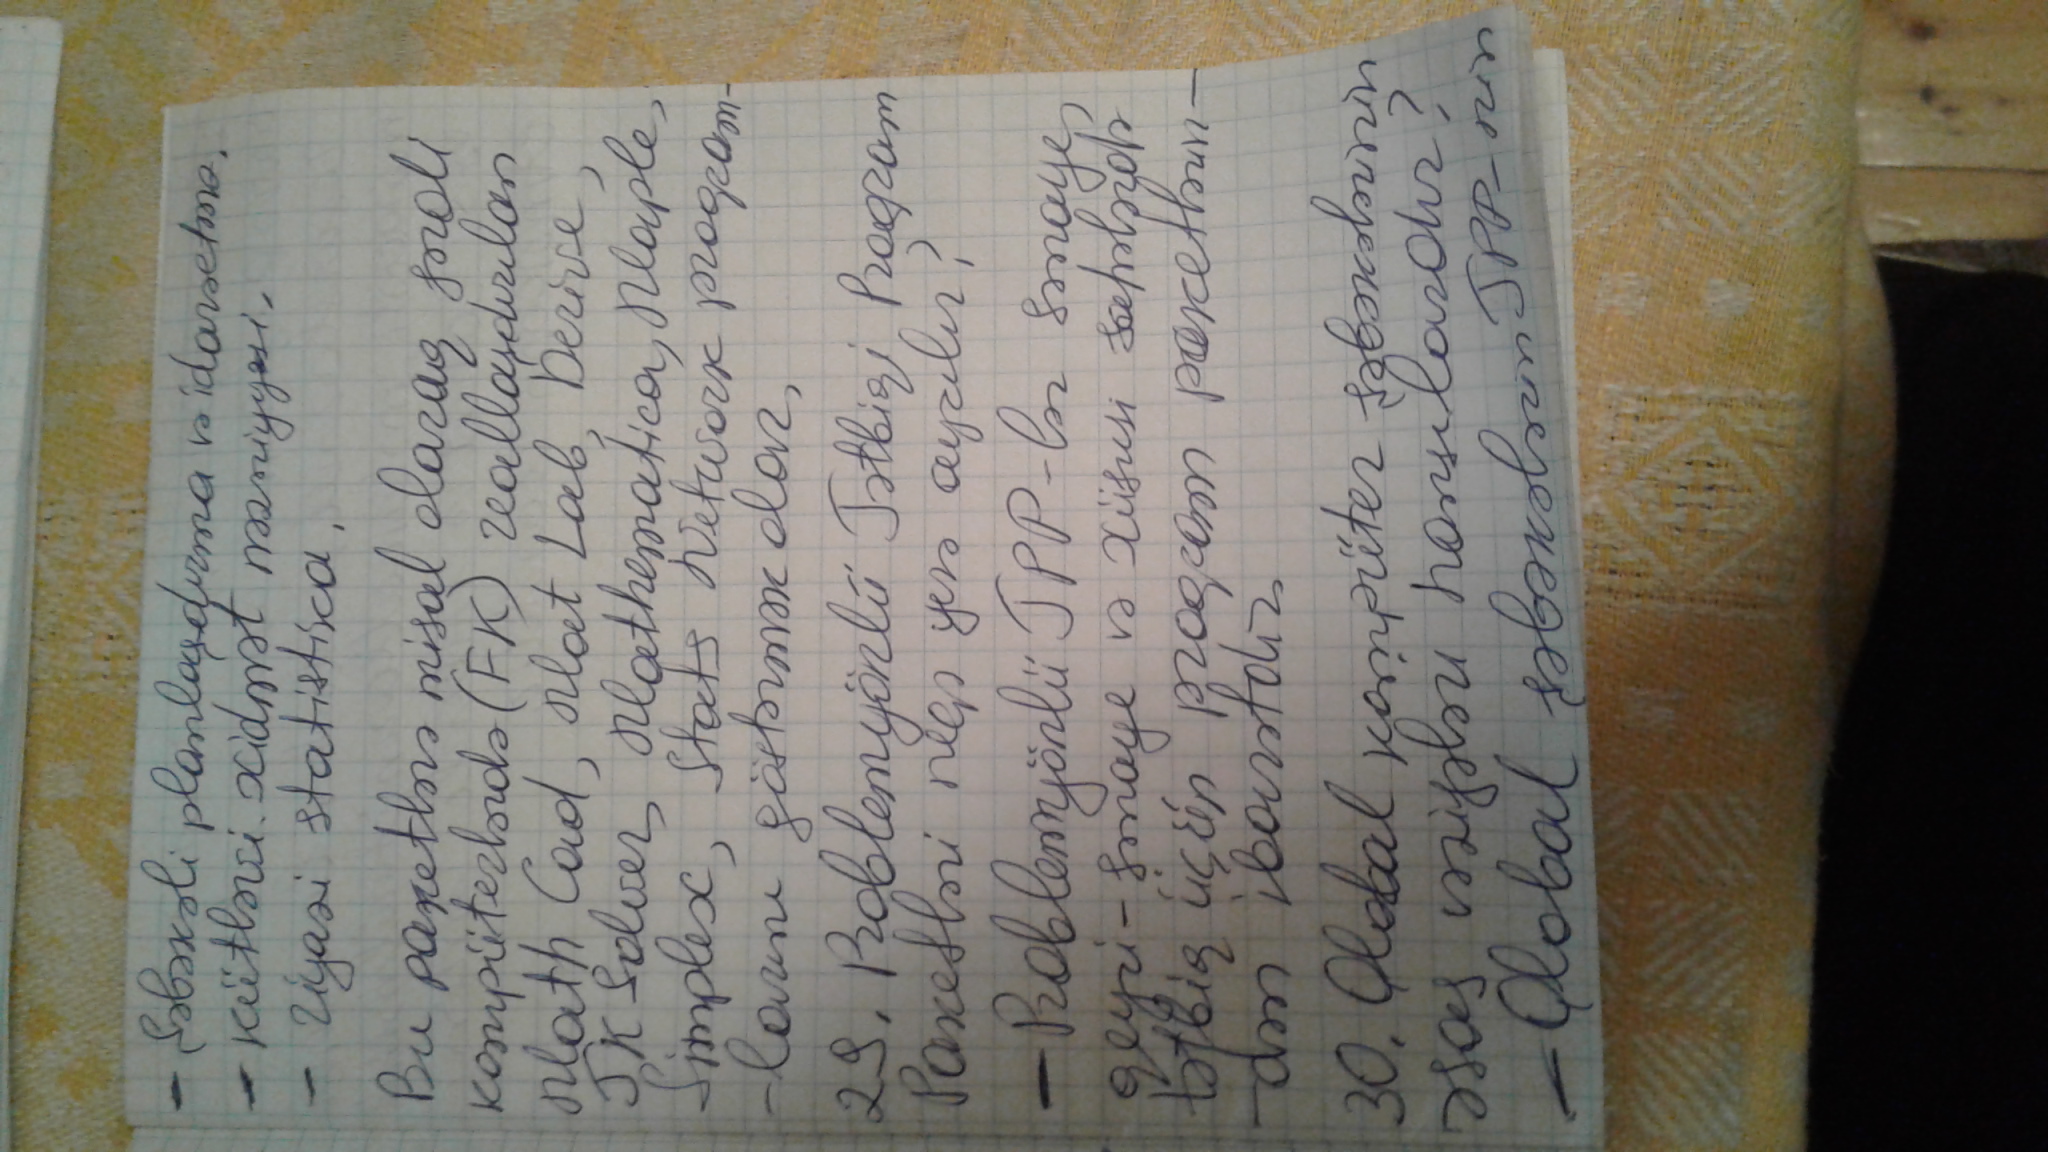 - Şəbəkəli planlaşdırma və idarəetmə.
- kütləvi xidmət nəzəriyyəsi.
- riyazi statistika.
Bu paketlərə misal olaraq fərdi
kompüterlərdə (FK) reallaşdırılan
Math Cad, Mat Lab, Derive,
TK Solver, Mathematica, Maple,
Simplex, Stats Network program-
-larını göstərmək olar,
29. Problemyönlü Tətbiqi Program
Paketləri neçə yerə ayrılır?
- Problemyönlü TPP-lər sənaye,
qeyri-sənaye və xüsusi sahələrdə
tətbiq üçün program paketlərin-
-dən ibarətdir
30. Qlobal kompüter şəbəkələrinin
əsas vəzifələri hansılardır?
- Qlobal şəbəkələrin TPP-nin